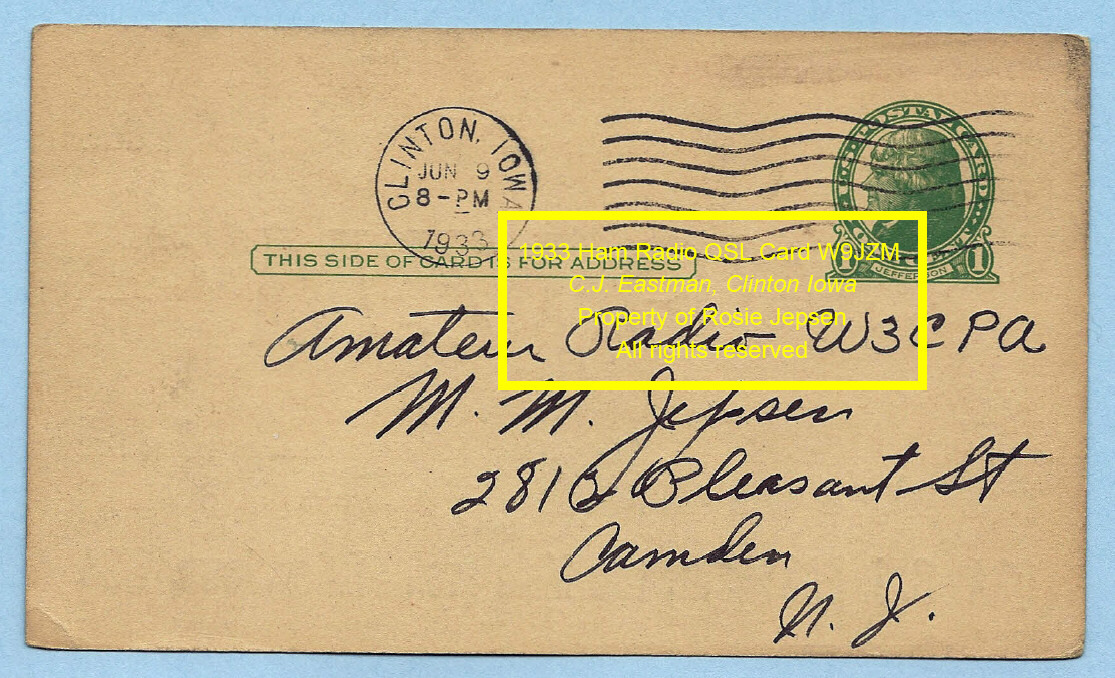 CLINTON, IOWA
JUN 9
8-PM
1933
U.S. POSTAL CARD
1 CENT 1
JEFFERSON
THIS SIDE OF CARD IS FOR ADDRESS
1933 Ham Radio QSL Card W9JZM
C.J. Eastman, Clinton Iowa
Property of Rosie Jepsen
All rights reserved
Amateur Radio W3CPA
M. M. Jepsen
2813 Pleasant St
Camden
N. J.